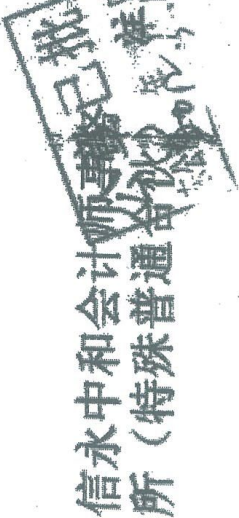 信永中和会计师事务
所（特殊普通合伙）
已批
准